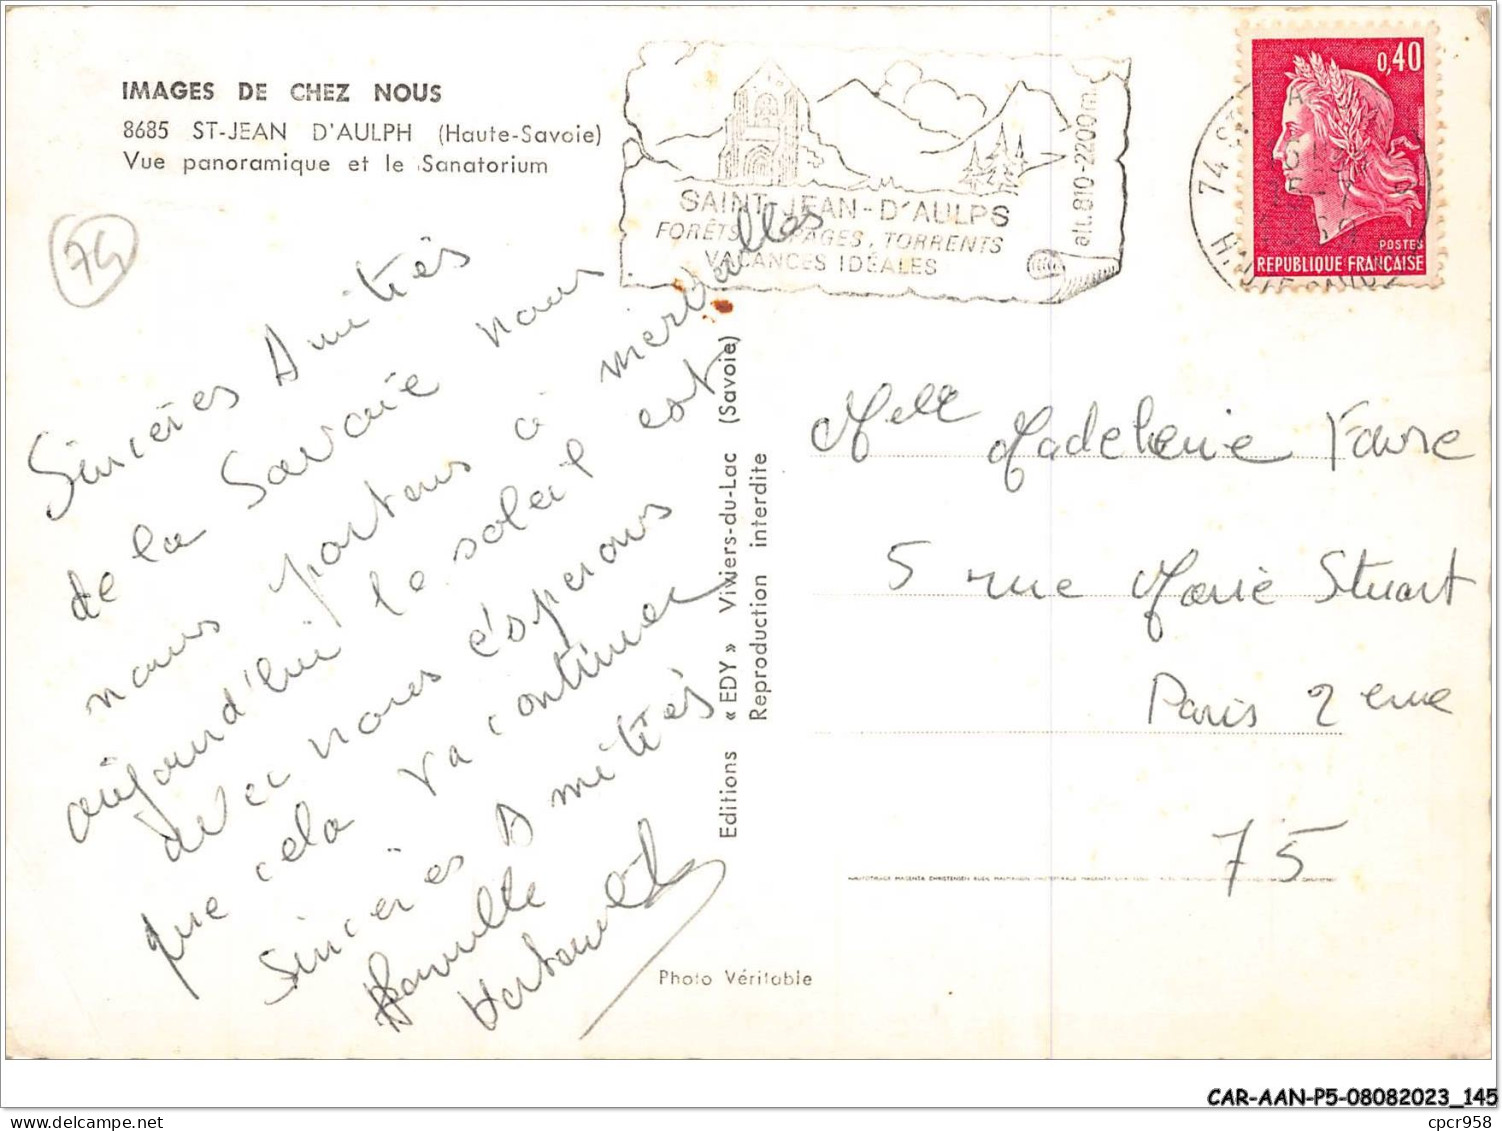 IMAGES DE CHEZ NOUS
8685 ST-JEAN D'AULPH (Haute-Savoie)
Vue panoramique et le Sanatorium
74
SAINT-JEAN-D'AULPS
FORÊTS, ALPAGES, TORRENTS
VACANCES IDÉALES
alt. 810-2200m
0,40
POSTES
REPUBLIQUE FRANÇAISE
Sincères Amitiés
de la Savoie nous
nous portons à merveilles
aujourd'hui le soleil est
avec nous espérons
que cela va continuer
Sincères Amitiés
Editions « EDY » Viviers-du-Lac (Savoie)
Reproduction interdite
Melle Madeleine Favre
5 rue Marie Stuart
Paris 2 eme
75
Photo Véritable
CAR-AAN-P5-08082023_145
cpcr958